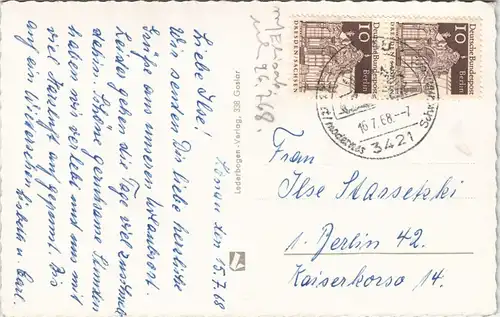 Lonau den 15.7.68
Liebe Ilse!
Wir senten Dir liebe herzliche
Grüße aus unseren Urlaubsort.
Leider gehen die Tage viel zu schnell
dahin. Schöne gemeinsame Stunden
haben wir verlebt und uns mit
viel auf getannt. Bis
auf ein Wiedersehen Lisbeth u. Carl.
Lederbogen-Verlag, 338 Goslar
10
Deutsche Bundespost
Berlin
DRESDEN/SACHSEN
10
Deutsche Bundespost
Berlin
DRESDEN/SACHSEN
16.7.68.--7
3421
modernes
Frau
Ilse Stassetzki
1. Berlin 42.
Kaiserkorso 14.